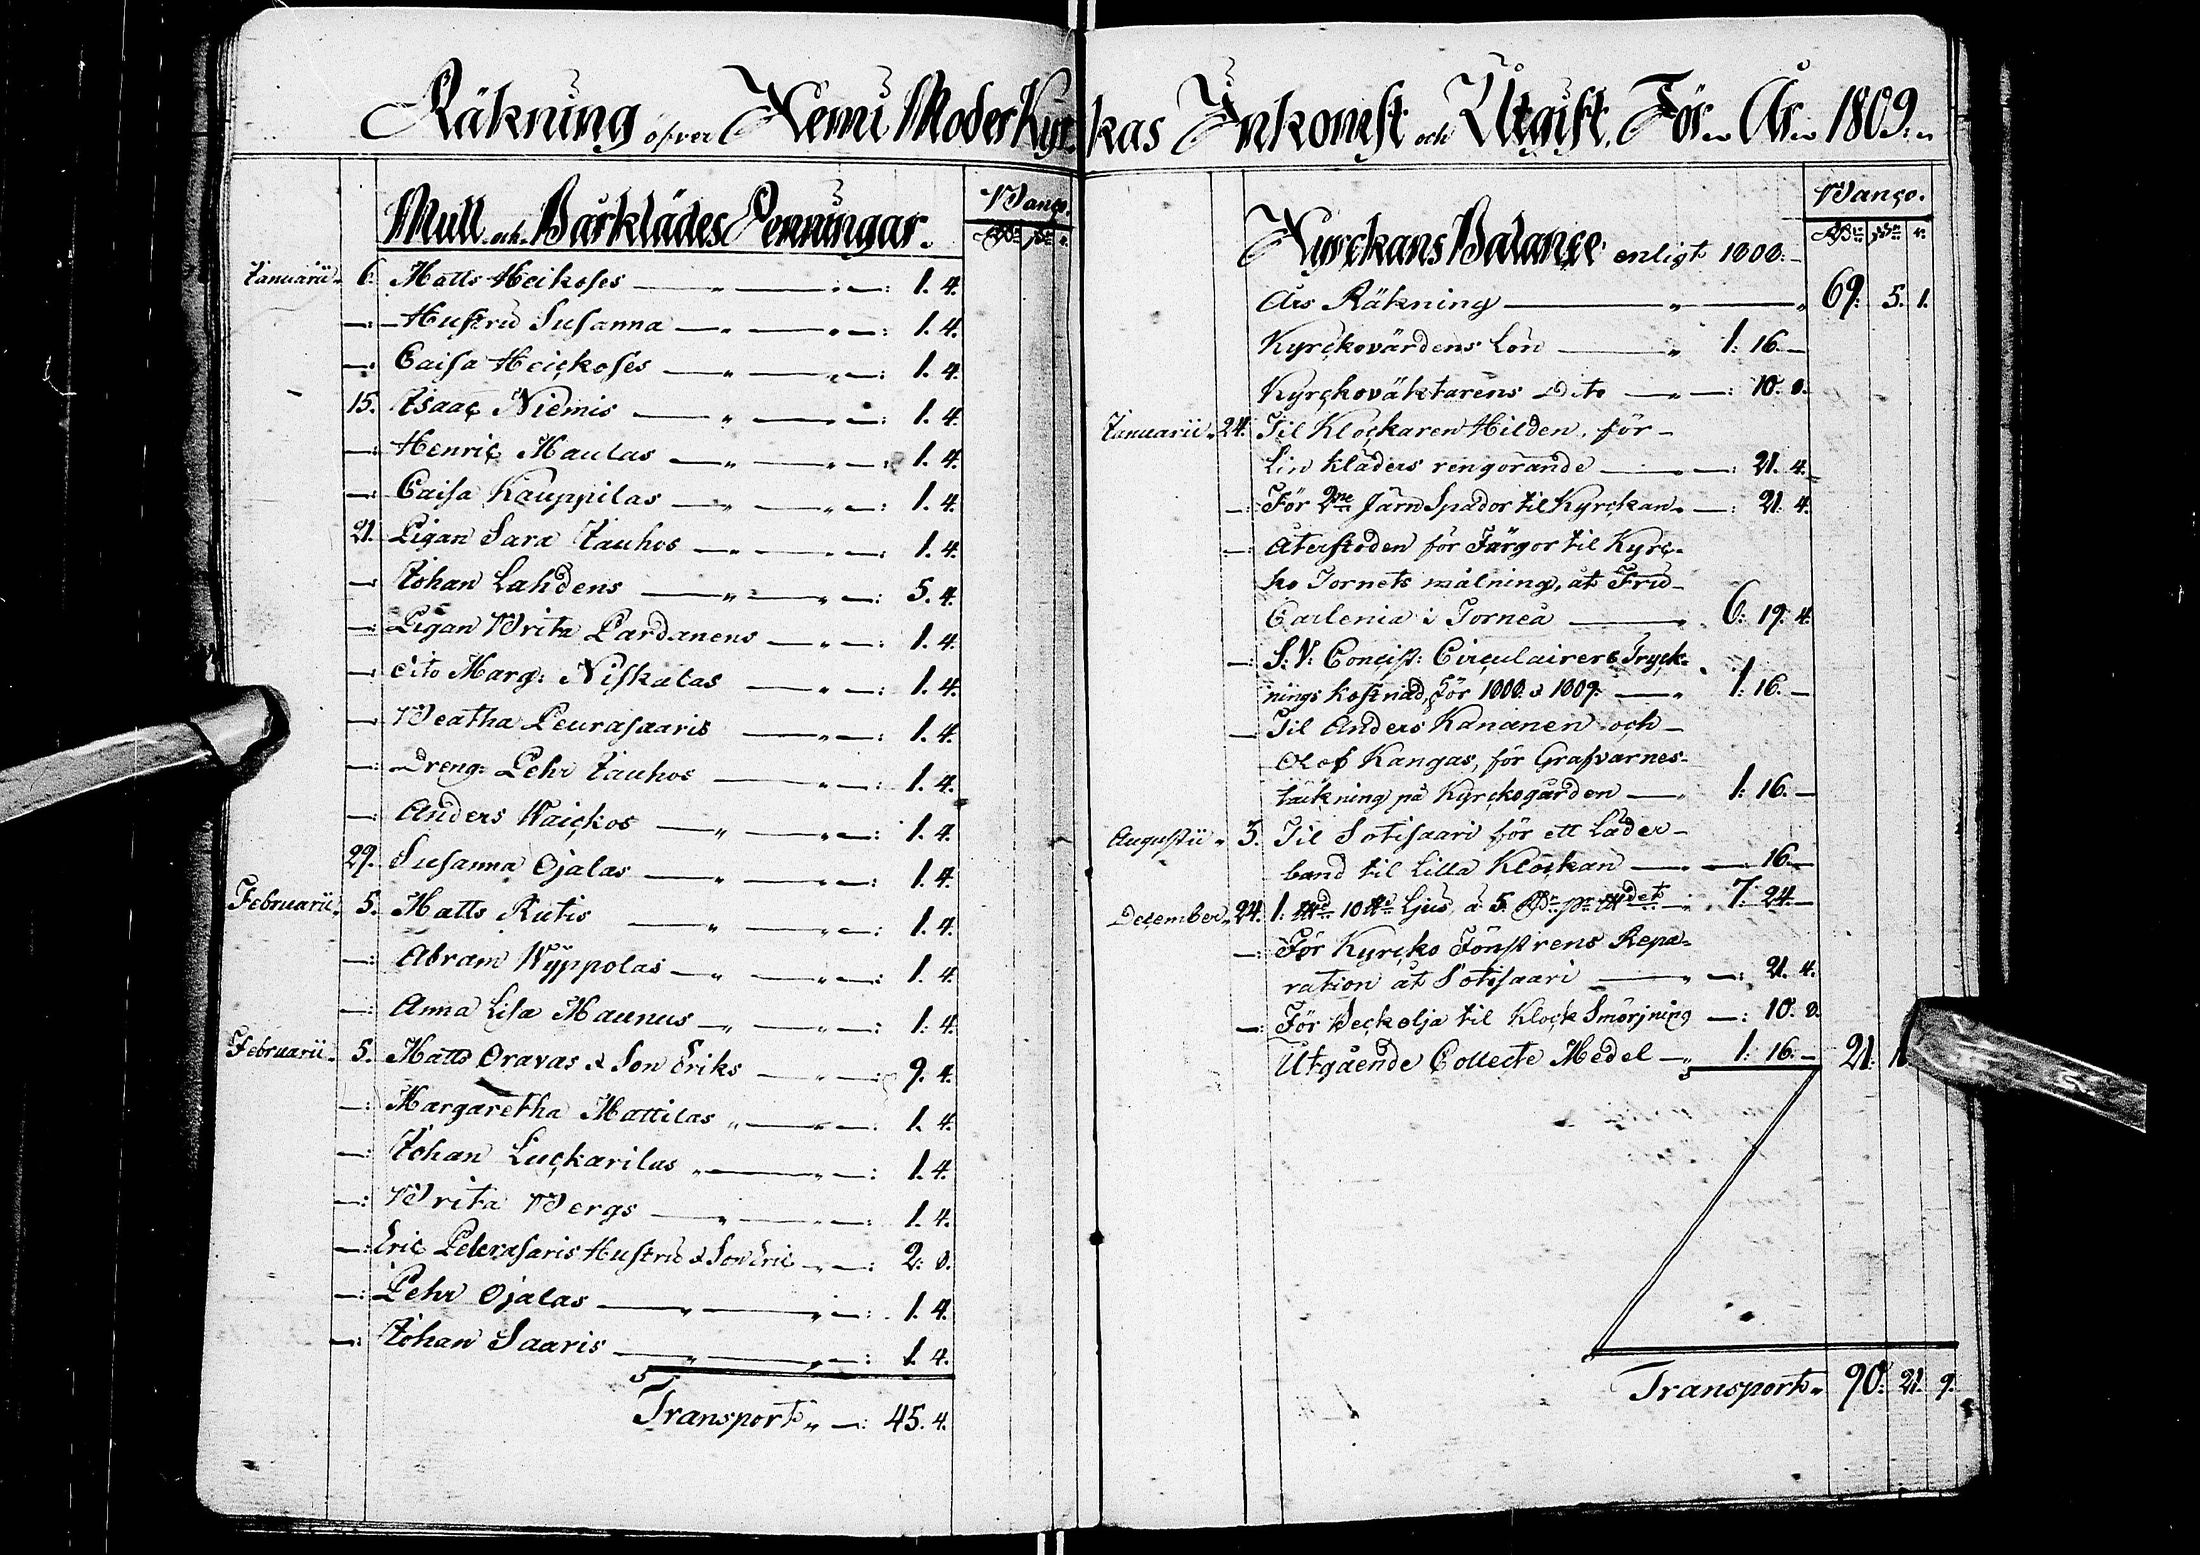 Räkning öfver Kemi Moder Kyr-
kas Inkomst och Utgift För År 1809.
Mull och Bårklädes Penningar.
Banço.
Januarii 6. Matts Heikoses 1. 4.
Hustru Susanna 1. 4.
Caisa Heickoses 1. 4.
15. Isaac Niemis 1. 4.
Henric Maulas 1. 4.
Caisa Kauppilas 1. 4.
21. Pigan Sara Jauhos 1. 4.
Johan Lahdens 5. 4.
Pigan Brita Pardanens 1. 4.
dito Marg: Niskalas 1. 4.
Beatha Peurasaaris 1. 4.
Dreng: Pehr Jauhos 1. 4.
Anders Waickos 1. 4.
29. Susanna Ojalas 1. 4.
Februarii 5. Matts Rutis 1. 4.
Abram Wyppolas 1. 4.
Anna Lisa Maunus 1. 4.
Februarii 5. Matts Oravas & Son Eriks 9. 4.
Margaretha Mattilas 1. 4.
Johan Luckarilas 1. 4.
Brita Bergs 1. 4.
Eric Peurasaris Hustru & Son Eric 2. 8.
Pehr Ojalas 1. 4.
Johan Saaris 1. 4.
Transport 45. 4.
Banço.
Kyrckans Balance enligt 1808.
Års Räkning 69. 5. 1.
Kyrckovärdens Lön 1: 16.
Kyrckoväktarens Dito 10. 8.
Januarii 24. Til Klockaren Hilden, för
Lin kläders rengörande 21. 4.
För 2ne Järn Spador til Kyrckan 21. 4.
Återstoden för Färgor til Kyrc-
ko Tornets målning, åt Fru
Carlenia i Torneå 6: 19. 4.
S: V: Concist: Circulairers Tryck-
nings kostnad, för 1808 & 1809. 1: 16.
Til Anders Kananen och
Olof Kangas, för Grafvarnes
täckning på Kyrckogården 1: 16.
Augustii 3. Til Sotisaari för ett Läder-
band til Lilla Klockan 16.
December 24. 1: 10 Ljus à 5. 7: 24.
För Kyrcko Fönstrens Repa-
ration åt Sotisaari 21. 4.
För Beckolja til Klock Smörjning 10. 8.
Utgående Collecte Medel 1: 16. 21:
Transport 90: 21. 9.